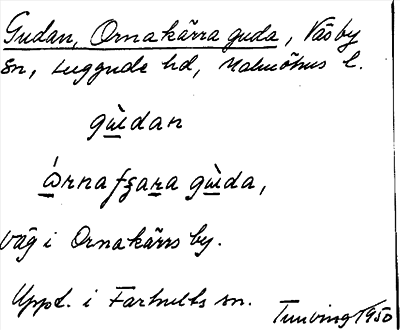 Gudan, Ornakärra guda, Väsby
sn, Luggude hd, Malmöhus l.
gùidan
òrnafʒara gùida,
väg i Ornakärrs by.
Uppt. i Farhults sn.
Tunving 1950